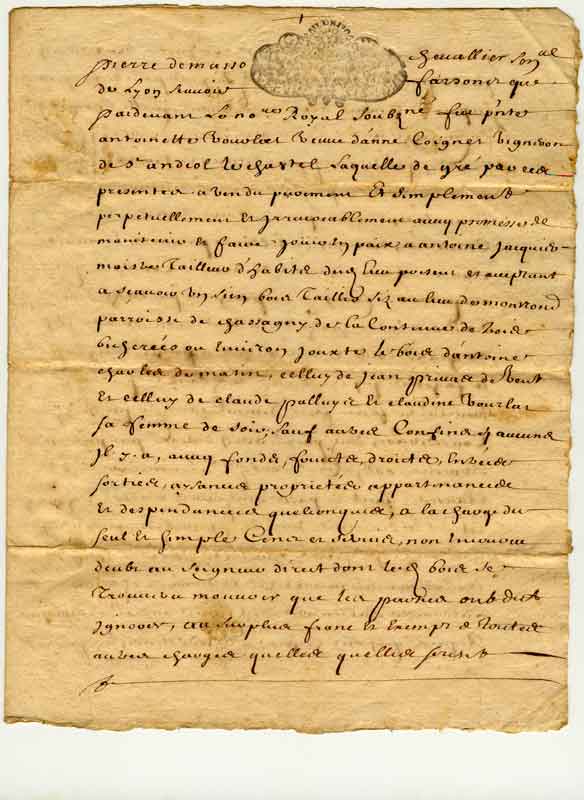 pierre demasso chevallier Sen.al
de Lyon Scavoir faisons que
pardevant Le no.re Royal Soubz.né fut p.nte
antoinette Bourlat veuve d'anne Coignet vigneron
de S.t andiol le chastel Laquelle de gré par ces
presentes a vendu purement Et Simplement
perpetuellement et Irrevocablement avecq promesse de
maintenir et faire Jouir En paix a antoine Jacquier
maistre Tailleur d'habits dud. lieu present et acceptant
a Scavoir un Sien bois Taillis Siz au lieu de montrond
parroisse de chassagny de la Contenue de Trois
bicherées ou Environ Jouxte le bois d'antoine
charles de matin, celluy de Jean privas de
Et celluy de claude palluys et claudine Bourlat
Sa femme de Soir, Sauf autres Confins Sy aucuns
Jl y a, avecq fonds, fruicts, droicts, Entrées
Sorties, aysances proprietés appartenances
Et despendances quelconques, a la charge du
Seul Et Simple Cens et Servis, non Encouru
deubt au Seigneur direct dont led. bois Se
Trouvera mouvoir que les parties ont dit
Ignorer, au Surplus franc Et Exempt de Toutes
autres charges quelles quelles Soient